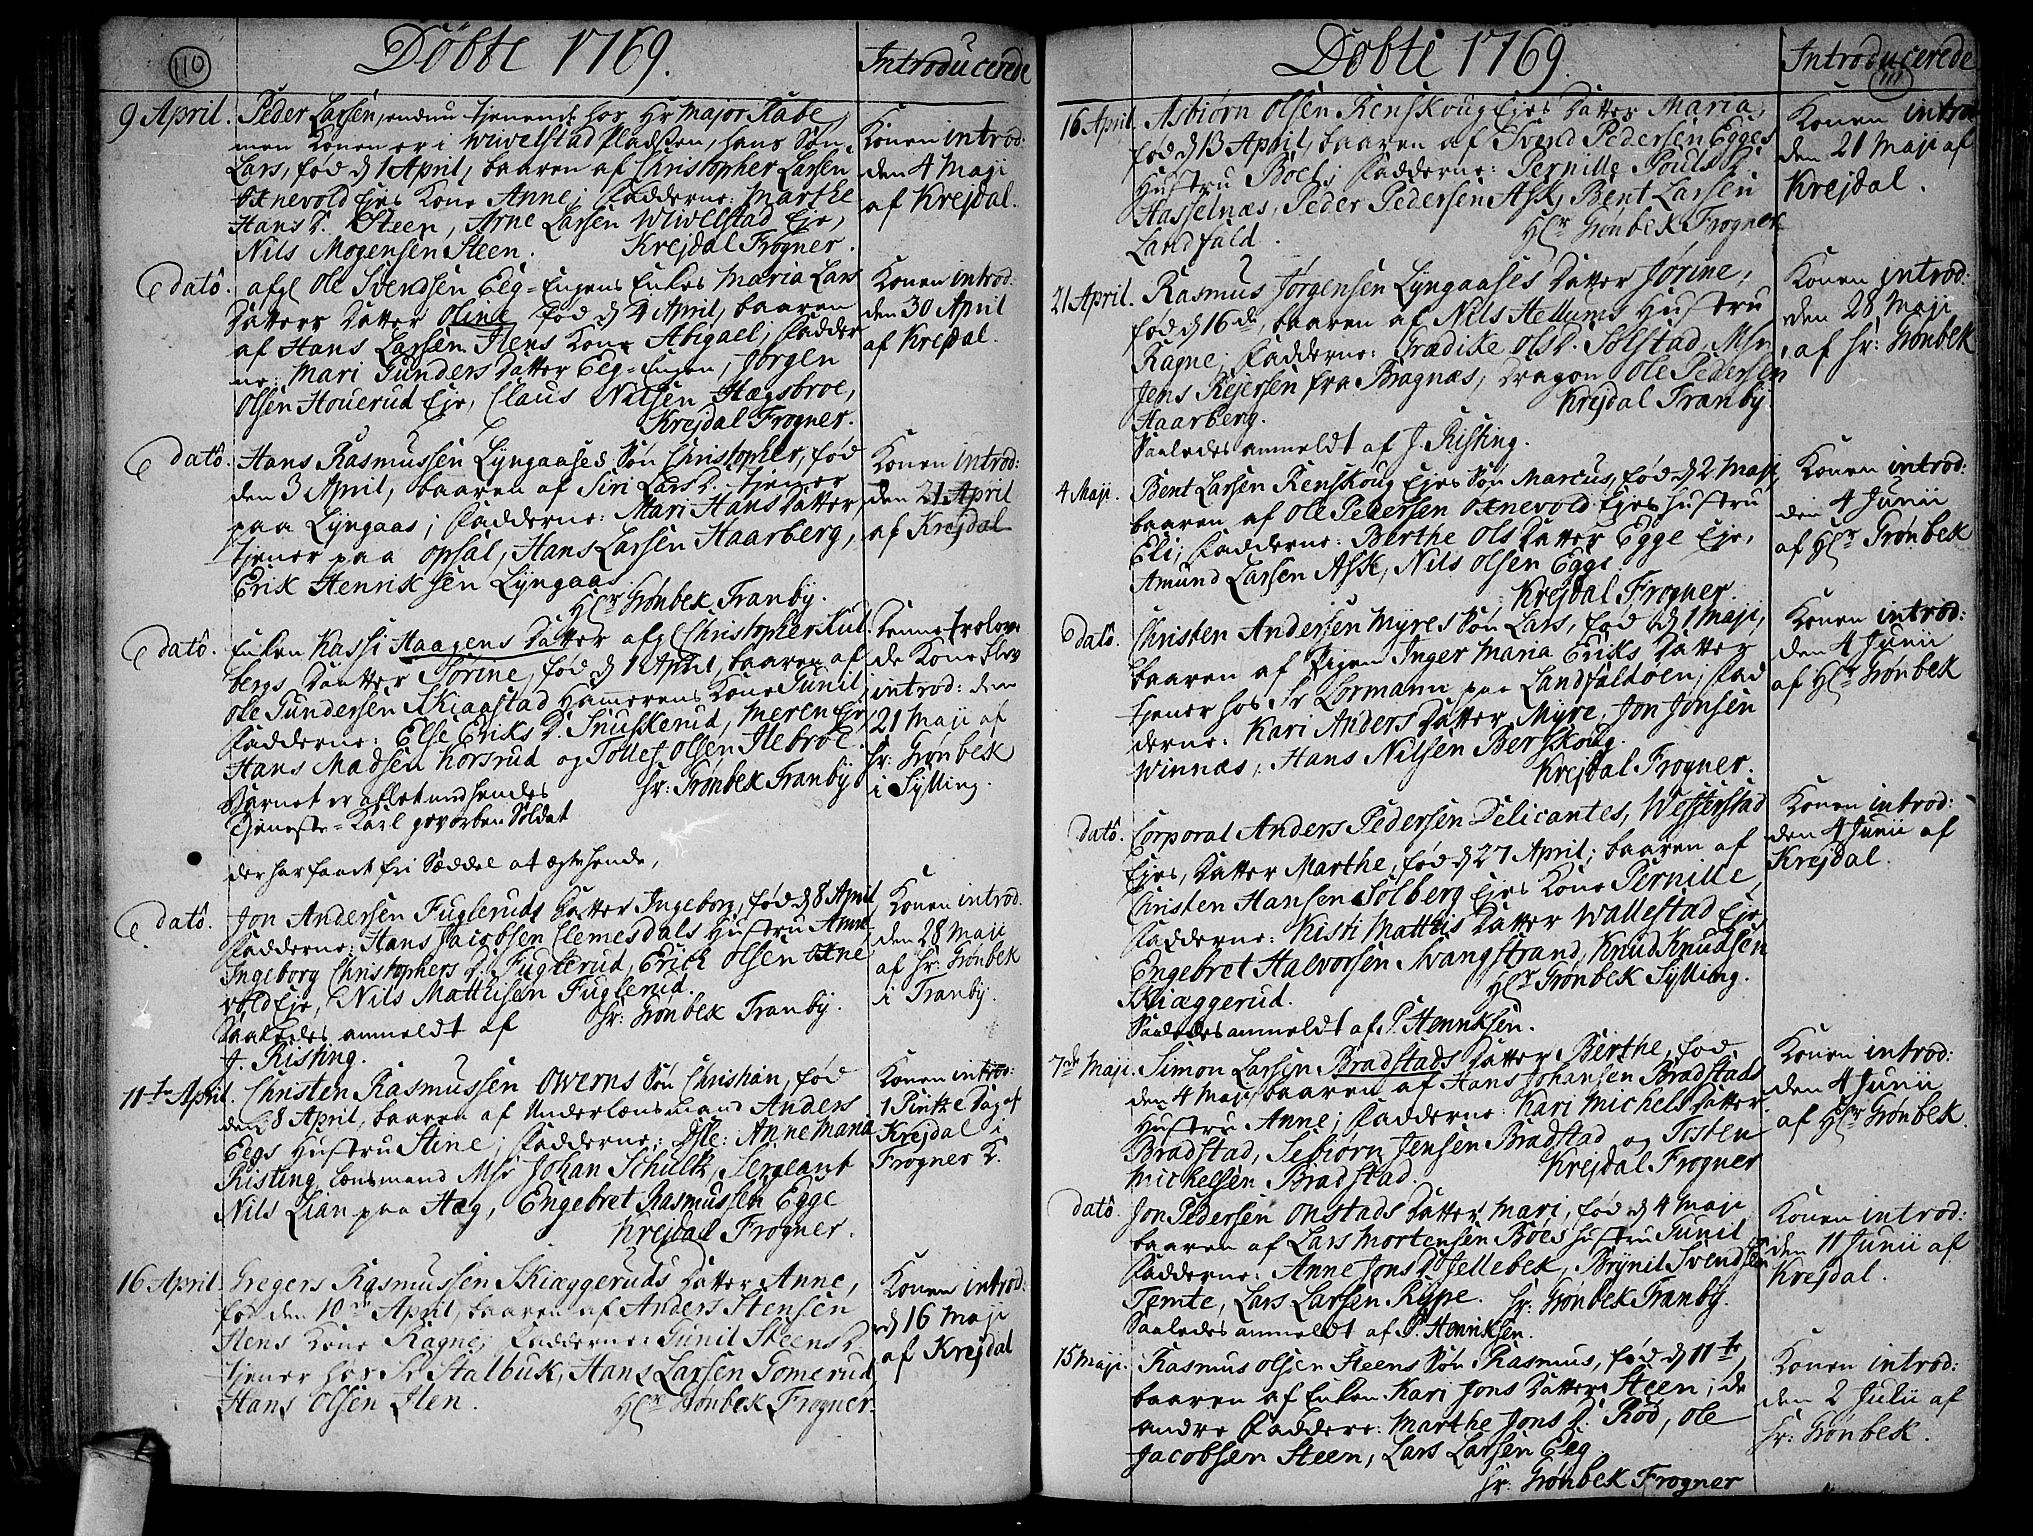 110
Döbte 1769.
Introducerede
9 April. Peder Larsen, endnu tjenende hos Hr Major Rabe,
men Konen er i Wivelstad Pladsen, hans Søn
Lars, fød d 1 April, baaren af Christopher Larsen
Oxnevold Ejes Kone Anne; Fadderne: Marthe
Hans D. Steen, Arne Larsen Wivelstad Eje,
Nils Mogensen Steen. Krejdal Frogner.
Konen introd:
den 4 Maji
af Krejdal.
dato. afg Ole Svendsen Eeg-Engens Enkes Maria Lars
Datters Datter Oline fød d 4 April, baaren
af Hans Larsen Ilens Kone Abigael; Fadder
ne: Mari Gunders Datter Eeg-Engen, Jørgen
Olsen Houerud Eje, Claus Nilsen Hægsbroe,
Krejdal Frogner.
Konen introd:
den 30 April
af Krejdal.
dato. Hans Rasmussen Lyngaases Søn Christopher, fød
den 3 April, baaren af Siri Lars D. tjener
paa Lyngaas; Fadderne: Mari Hans Datter,
tjener paa Opsal, Hans Larsen Haarberg,
Erik Henriksen Lyngaas.
Hr Grönbek Tranby.
Konen introd:
den 21 April
af Krejdal
dato. Enken Kassi Haagens Datter afg Christopher Kul
bergs Datter Torine, fød d 1 April, baaren af
Ole Gundersen Skiaastad Hammerens Kone Gunil
Fadderne: Else Eriks D. Snuskerud, Meren Eje
Hans Madsen Korsrud og Tollef Olsen Ilebroe.
Barnet er aflet med hendes Sr: Grönbek Tranby
Tjeneste-Karl gevorben Soldat
der har faaet fri Seddel at ægte hende,
Denne trolov
de Kone blev
introd: den
21 Maji af
Sr: Grönbek
i Sylling.
dato. Jon Andersen Fugleruds Datter Ingeborg, fød d 8 April
Fadderne: Hans Jacobsen Clemesdals Hustru Anne
Ingeborg Christophers D. Fuglerud, Erich Olsen Oxne
vold Eje, Nils Matthisen Fuglerud.
Saaledes anmeldt af Sr: Grönbek Tranby.
J. Risting.
Konen introd.
den 28 Maji
af Sr: Grönbek
i Tranby.
11te April. Christen Rasmussen Owerns Søn Christian, fød
den 8 April, baaren af Underlænsmand Anders
Eegs Hustru Stine; Fadderne: Mlle: Anne Maria
Risting, Lænsmand Msr Johan Schultz, Sergeant
Nils Lian paa Hæg, Engebret Rasmussen Egge
Krejdal Frogner.
Konen introd:
1 Pintze Dag af
Krejdal i
Frogner K.
16 April. Gregers Rasmussen Skiæggeruds Datter Anne,
fød den 10de April, baaren af Anders Stensen
Ilens Kone Ragne; Fadderne: Gunil Steens D.
tjener hos Sr Stalbuk, Hans Larsen Gomerud,
Hans Olsen Ilen. Hr Grönbek Frogner.
Konen introd:
d 16 Maji
af Krejdal
111
Döbte 1769.
Introducerede
16 April. Asbiørn Olsen Renskoug Ejes Datter Maria,
fød d 13 April, baaren af Svend Pedersen Egges
Hustru Boel; Fadderne: Pernille Pouls D.
Hasselnæs, Peder Pedersen Ask, Bent Larsen
Landfald. Hr Grönbek Frogner.
Konen introd
den 21 Maji af
Krejdal.
21 April. Rasmus Jørgensen Lyngaases Datter Jørine,
fød d 16 de, baaren af Nils Hellums Hustru
Ragne; Fadderne: Grædike Ols D. Solstad, Msr
Jens Rejersen fra Bragnæs, Dragon Ole Pedersen
Haarberg. Krejdal Tranby.
Saaledes anmeldt af J. Risting.
Konen introd:
den 28 Maji
af Sr: Grönbek
4 Maji. Bent Larsen Renskoug Ejes Søn Marcus, fød d 2 Maji,
baaren af Ole Pedersen Oxnevold Ejes Hustru
Eli; Fadderne: Berthe Ols Datter Egge Eje,
Amund Larsen Ask, Nils Olsen Egge.
Krejdal Frogner.
Konen introd:
den 4 Junii
af Hr Grönbek
dato. Christen Andersen Myres Søn Lars, fød d 1 Maji,
baaren af Pigen Inger Maria Eriks Datter
tjener hos Sr Lormann paa Landfaldøen; Fad
derne: Kari Anders Datter Myre, Jon Jonsen
Winnæs, Hans Nilsen Berskoug.
Krejdal Frogner.
Konen introd:
den 4 Junii
af Hr Grönbek
dato. Corporal Anders Pedersen Delicantes, Wefferstad
Ejes, Datter Marthe, fød d 27 April; baaren af
Christen Hansen Solberg Ejes Kone Pernille,
Fadderne: Kisti Matthis Datter Wallestad Eje,
Engebret Halvorsen Svangstrand, Knud Knudsen
Skiæggerud. Hr Grönbek Sylling.
Saaledes anmeldt af P. Henriksen.
Konen introd:
den 4 Junii af
Krejdal.
7de Maji. Simon Larsen Bradstads Datter Berthe, fød
den 4 Maji, baaren af Hans Johansen Bradstads
Hustru Anne; Fadderne: Kari Michels Datter
Bradstad, Sebiørn Jensen Bradstad og Tosten
Michelsen Bradstad. Krejdal Frogner
Konen introd:
den 4 Junii
af Hr Grönbek.
dato. Jon Pedersen Onstads Datter Mari, fød d 4 Maji
baaren af Lars Mortensen Böes Hustru Gunil
Fadderne: Anne Jons D. Jellebek, Brynil Svendsen
Temte, Lars Larsen Rype. Sr: Grönbek Tranby.
Saaledes anmeldt af P. Henriksen.
Konen introd:
den 11 Junii af
Krejdal.
15 Maji. Rasmus Olsen Steens Søn Rasmus, fød d 11te,
baaren af Enken Kari Jons Datter Steen; de
andre Faddere: Marthe Jons D. Röd, Ole
Jacobsen Steen, Lars Larsen Eeg.
Sr: Grönbek Frogner
Konen introd:
den 2 Julii af
Sr: Grönbek.